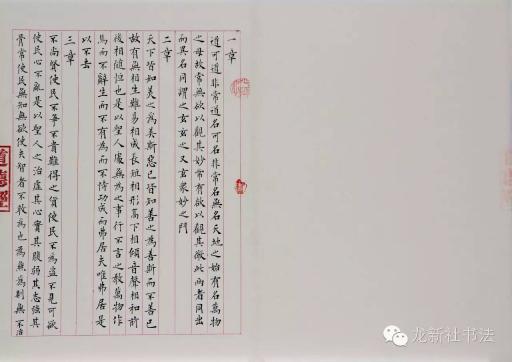 一章
道可道非常道名可名非常名無名天地之始有名萬物
之母故常無欲以觀其妙常有欲以觀其徼此兩者同出
而異名同謂之玄玄之又玄衆妙之門
二章
天下皆知美之為美斯惡已皆知善之為善斯不善已
故有無相生難易相成長短相形高下相傾音聲相和前
後相隨恒也是以聖人處無為之事行不言之教萬物作
焉而不辭生而不有為而不恃功成而弗居夫唯弗居是
以不去
三章
不尚賢使民不爭不貴難得之貨使民不為盜不見可欲
使民心不亂是以聖人之治虛其心實其腹弱其志強其
骨常使民無知無欲使夫智者不敢為也為無為則無不治
道德經
龙新社书法